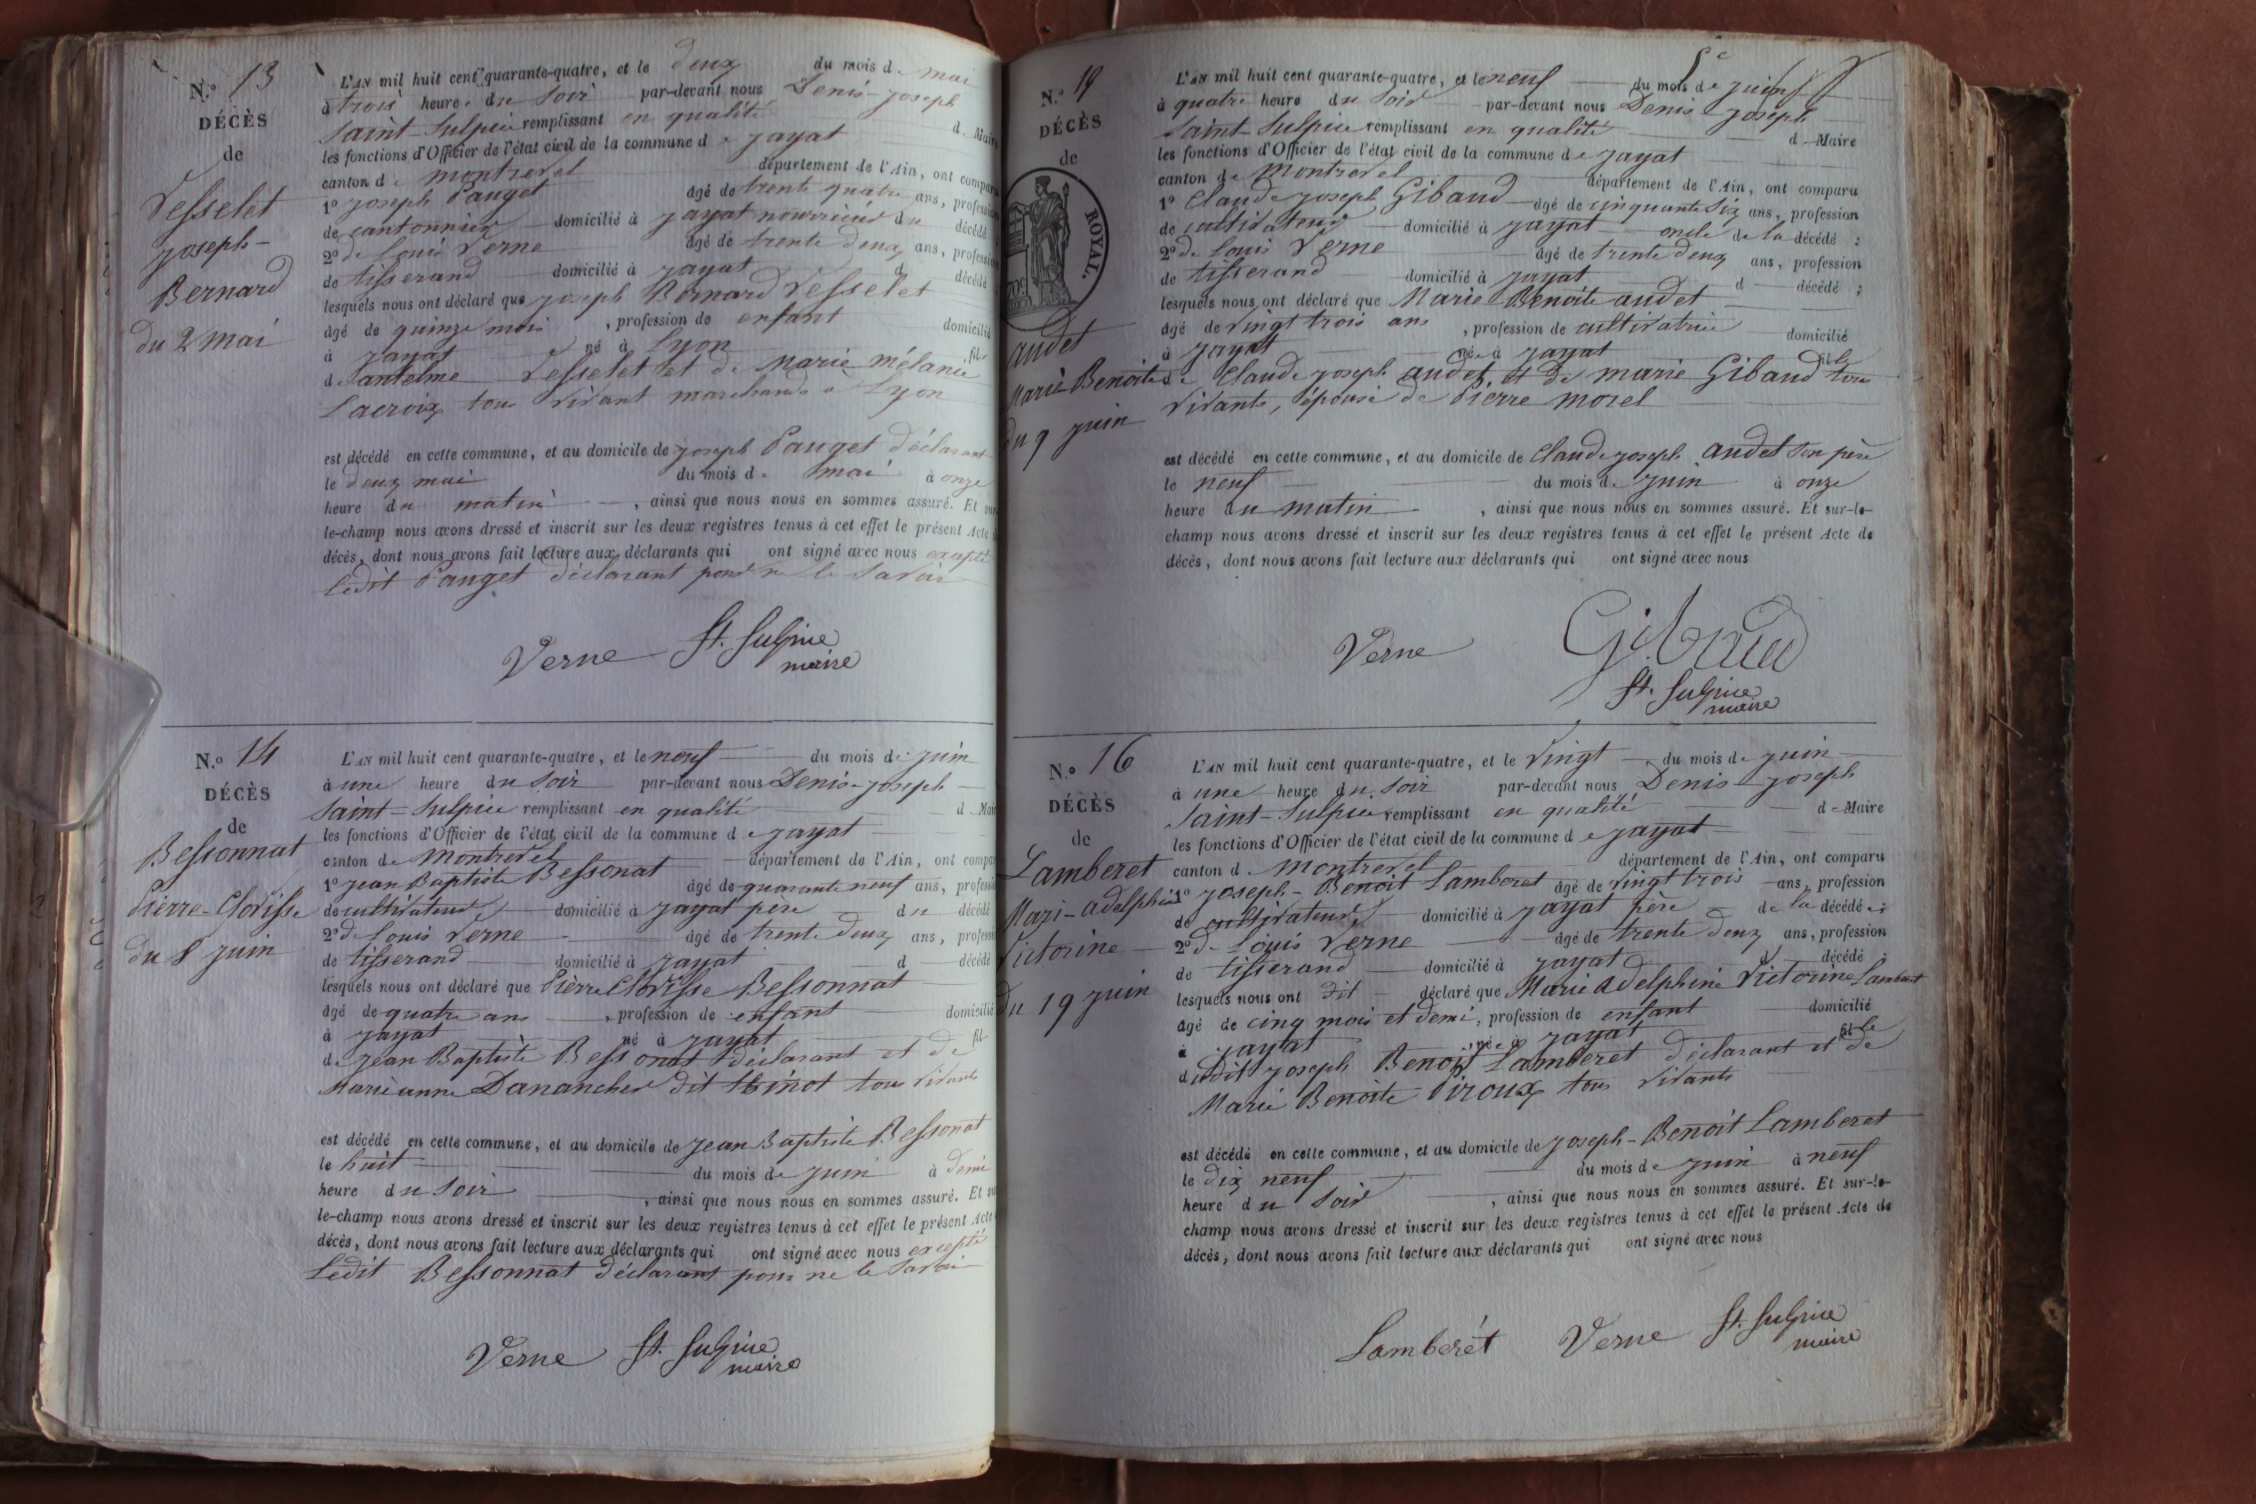 N.º 13
DÉCÈS
de
Vesselet
joseph-
Bernard
du 2 mai
L'AN mil huit cent quarante-quatre, et le deux du mois de mai
à trois heure du Soir par-devant nous Denis-joseph
Saint-Sulpice remplissant en qualité d Maire
les fonctions d'Officier de l'état civil de la commune de jayat
canton de montrevel département de l'Ain, ont comparu
1º joseph Pauget âgé de trente quatre ans, profession
de cantonnier domicilié à jayat nourricier du décédé
2º de Louis Verne âgé de trente deux ans, profession
de tisserand domicilié à jayat d décédé
lesquels nous ont déclaré que joseph Bernard Vesselet
âgé de quinze mois, profession de enfant domicilié
à jayat né à Lyon fil
d'antelme Vesselet et de Marie mélanie
Lacroix tous vivant marchands à Lyon
est décédé en cette commune, et au domicile de joseph Pauget déclarant
le deux mai du mois de mai à onze
heure du matin, ainsi que nous nous en sommes assuré. Et sur
le-champ nous avons dressé et inscrit sur les deux registres tenus à cet effet le présent Acte
décès, dont nous avons fait lecture aux déclarants qui ont signé avec nous excepté
Ledit Pauget déclarant pour ne le Savoir
Verne St. Sulpice
maire
N.º 14
DÉCÈS
de
Bessonnat
Pierre-Clovisse
du 8 juin
L'AN mil huit cent quarante-quatre, et le neuf du mois de juin
à une heure du Soir par-devant nous Denis-joseph
Saint-Sulpice remplissant en qualité d Maire
les fonctions d'Officier de l'état civil de la commune de jayat
canton de Montrevel département de l'Ain, ont comparu
1º jean Baptiste Bessonat âgé de quarante neuf ans, profession
de cultivateur domicilié à jayat père du décédé
2º de Louis Verne âgé de trente deux ans, profession
de tisserand domicilié à jayat d décédé
lesquels nous ont déclaré que Pierre Clovisse Bessonnat
âgé de quatre ans, profession de enfant domicilié
à jayat né à jayat fil
de jean Baptiste Bessonat déclarant et de
Marie anne Danancher dit tous vivants
est décédé en cette commune, et au domicile de jean Baptiste Bessonat
le huit du mois de juin à demi
heure du Soir, ainsi que nous nous en sommes assuré. Et sur
le-champ nous avons dressé et inscrit sur les deux registres tenus à cet effet le présent Acte
décès, dont nous avons fait lecture aux déclarants qui ont signé avec nous excepté
Ledit Bessonnat déclarant pour ne le Savoir
Verne St. Sulpice
maire
N.º
DÉCÈS
de
ROYAL.
audet
Marie Benoite
du 9 juin
L'AN mil huit cent quarante-quatre, et le neuf du mois de juin
à quatre heure du Soir par-devant nous Denis joseph
Saint-Sulpice remplissant en qualité d Maire
les fonctions d'Officier de l'état civil de la commune de jayat
canton de Montrevel département de l'Ain, ont comparu
1º Claude joseph Gibaud âgé de cinquante six ans, profession
de cultivateur domicilié à jayat oncle de la décédé ;
2º de Louis Verne âgé de trente deux ans, profession
de tisserand domicilié à jayat d décédé ;
lesquels nous ont déclaré que Marie Benoite audet
âgé de vingt trois ans, profession de cultivatrice domicilié
à jayat née à jayat fille
de Claude joseph audet et de marie Gibaud tous
vivants, épouse de Pierre morel
est décédé en cette commune, et au domicile de Claude joseph audet son père
le neuf du mois de juin à onze
heure du matin, ainsi que nous nous en sommes assuré. Et sur-le-
champ nous avons dressé et inscrit sur les deux registres tenus à cet effet le présent Acte de
décès, dont nous avons fait lecture aux déclarants qui ont signé avec nous
Verne Gibaud
St. Sulpice
maire
N.º 16
DÉCÈS
de
Lamberet
Mari-adelphine
Victorine
du 19 juin
L'AN mil huit cent quarante-quatre, et le vingt du mois de juin
à une heure du Soir par-devant nous Denis joseph
Saint-Sulpice remplissant en qualité d Maire
les fonctions d'Officier de l'état civil de la commune de jayat
canton d Montrevel département de l'Ain, ont comparu
1º joseph-Benoit Lamberet âgé de vingt trois ans, profession
de cultivateur domicilié à jayat père de la décédée ;
2º de Louis Verne âgé de trente deux ans, profession
de tisserand domicilié à jayat d décédé
lesquels nous ont dit déclaré que Marie adelphine Victorine Lamberet
âgé de cinq mois et demi, profession de enfant domicilié
à jayat née à jayat fille
dudit joseph Benoit Lamberet déclarant et de
Marie Benoite Piroux tous vivants
est décédé en cette commune, et au domicile de joseph-Benoit Lamberet
le dix neuf du mois de juin à neuf
heure du Soir, ainsi que nous nous en sommes assuré. Et sur-le-
champ nous avons dressé et inscrit sur les deux registres tenus à cet effet le présent Acte de
décès, dont nous avons fait lecture aux déclarants qui ont signé avec nous
Lamberét Verne St. Sulpice
maire